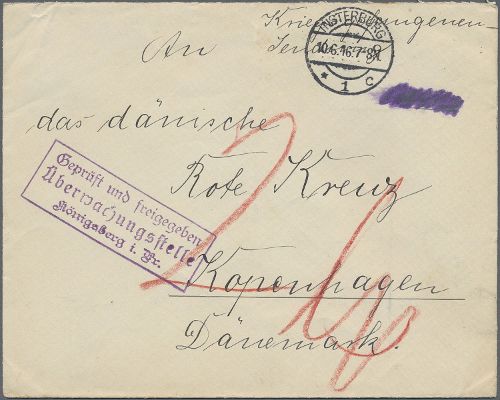 Kriegsgefangenen-
Sendung
INSTERBURG
10.6.16.7-8N.
* 1 c
An
das dänische
Rote Kreuz
Kopenhagen
Dänemark.
Geprüft und freigegeben
Überwachungsstelle
Königsberg i. Pr.